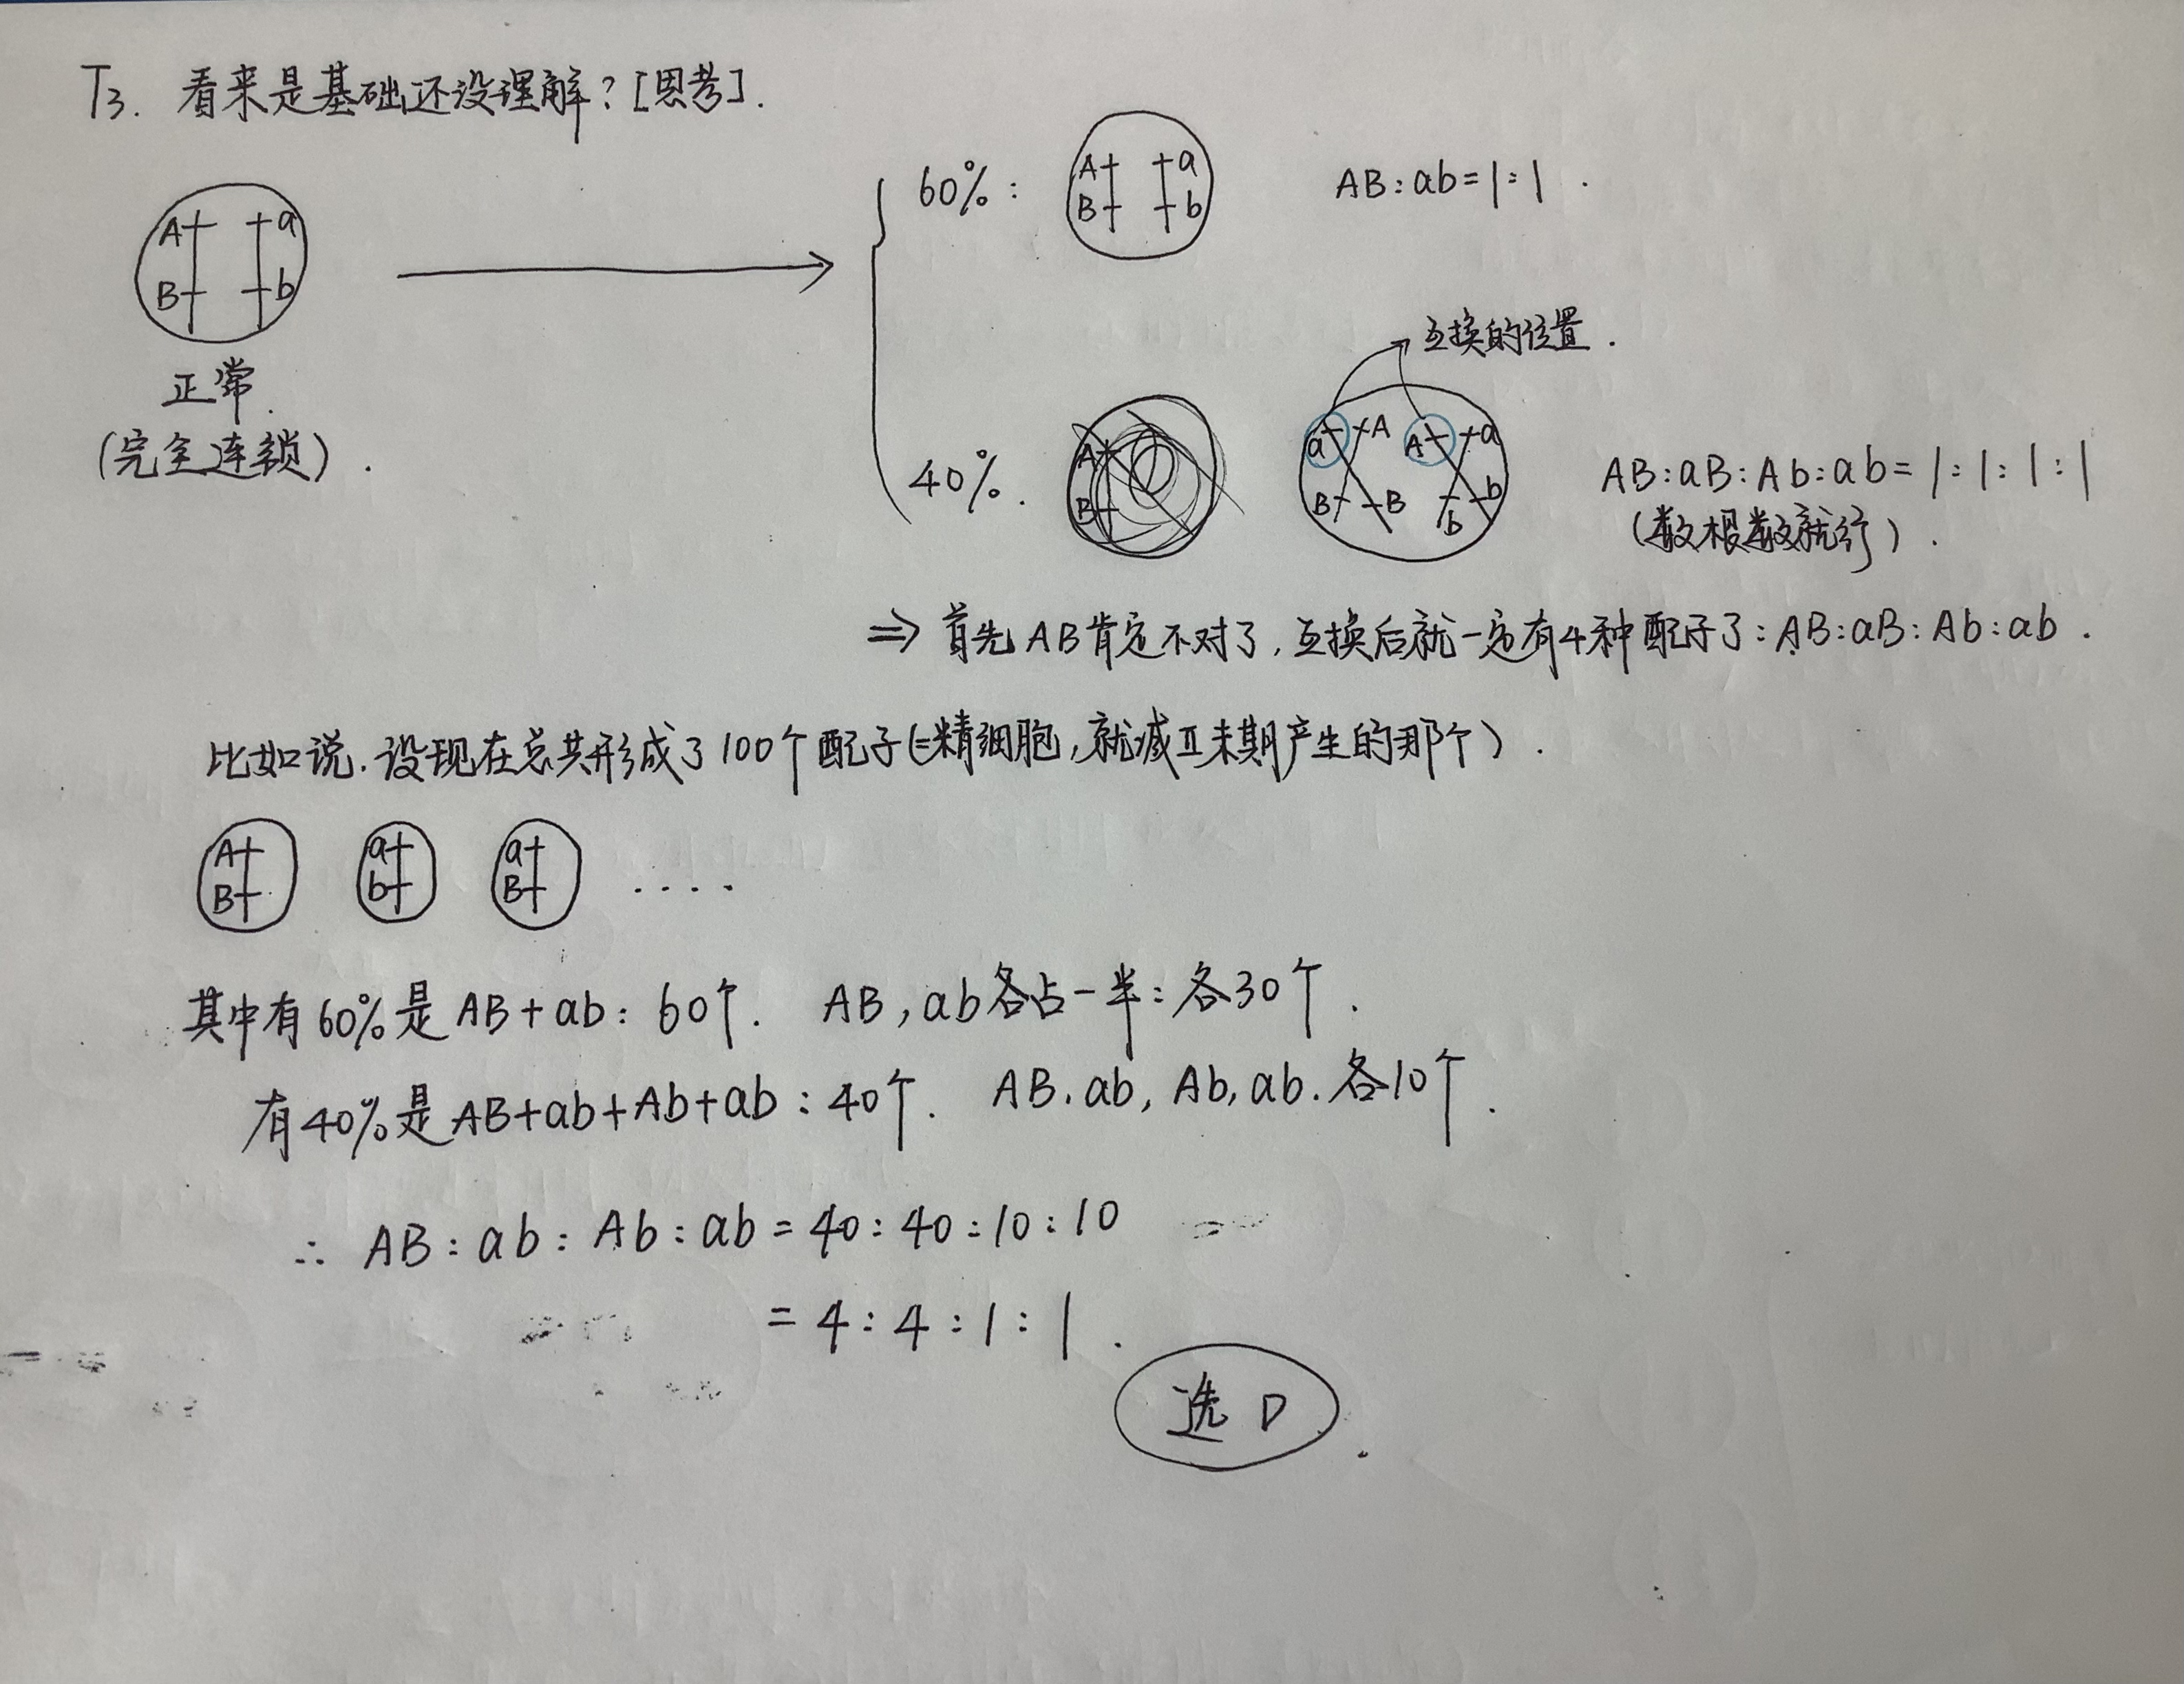 T3. 看来是基础还没理解？[思考].
A a
B b
正常.
(完全连锁).
60%: A a B b AB:ab=1:1.
互换的位置.
40%. A B a A A a B B b b AB:aB:Ab:ab=1:1:1:1
(数根数就行).
⇒ 首先AB肯定不对了,互换后就一定有4种配子了:AB:aB:Ab:ab.
比如说.设现在总共形成了100个配子(=精细胞,就减Ⅱ末期产生的那个).
A a a ....
B b B
其中有60%是AB+ab: 60个. AB,ab各占一半:各30个.
有40%是AB+ab+Ab+ab:40个. AB.ab,Ab,ab.各10个.
∴ AB:ab:Ab:ab=40:40:10:10
=4:4:1:1.
选D.